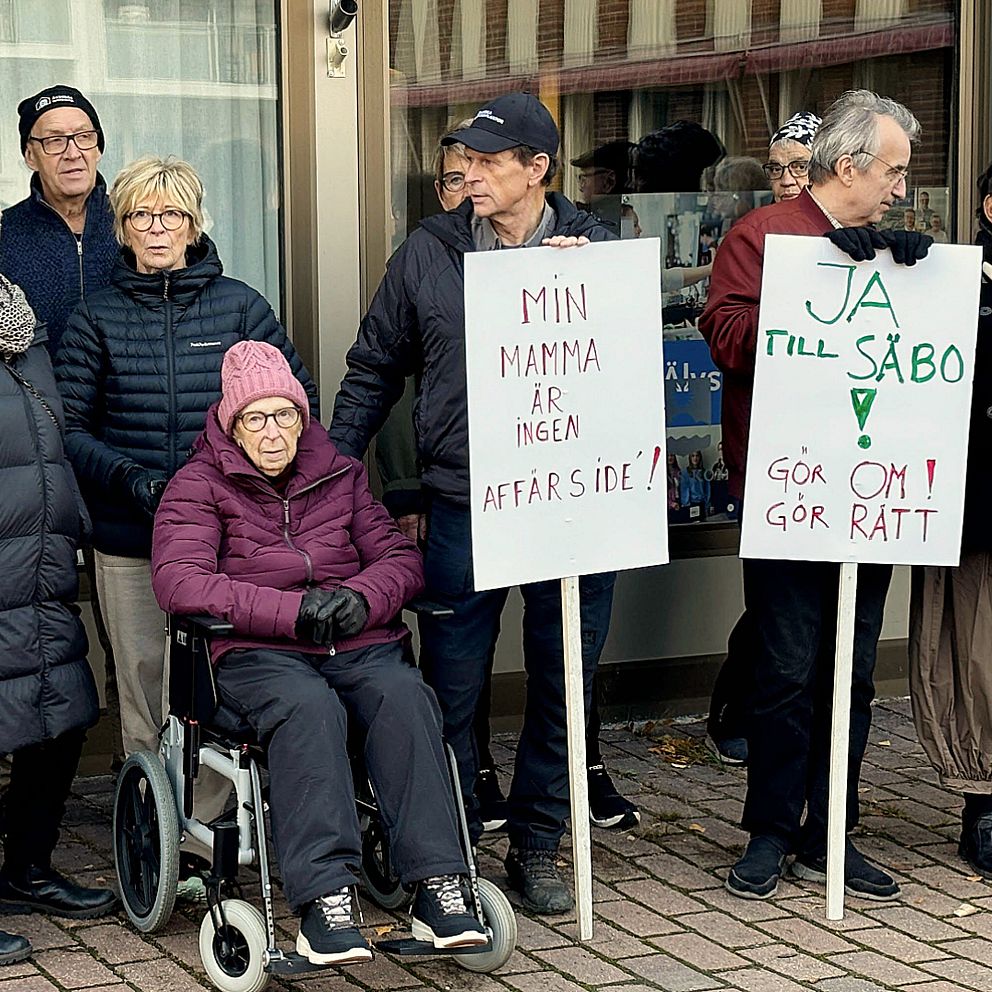 MIN
MAMMA
ÄR
INGEN
AFFÄRSIDE´!
JA
TILL SÄBO
!
GÖR OM!
GÖR RÄTT